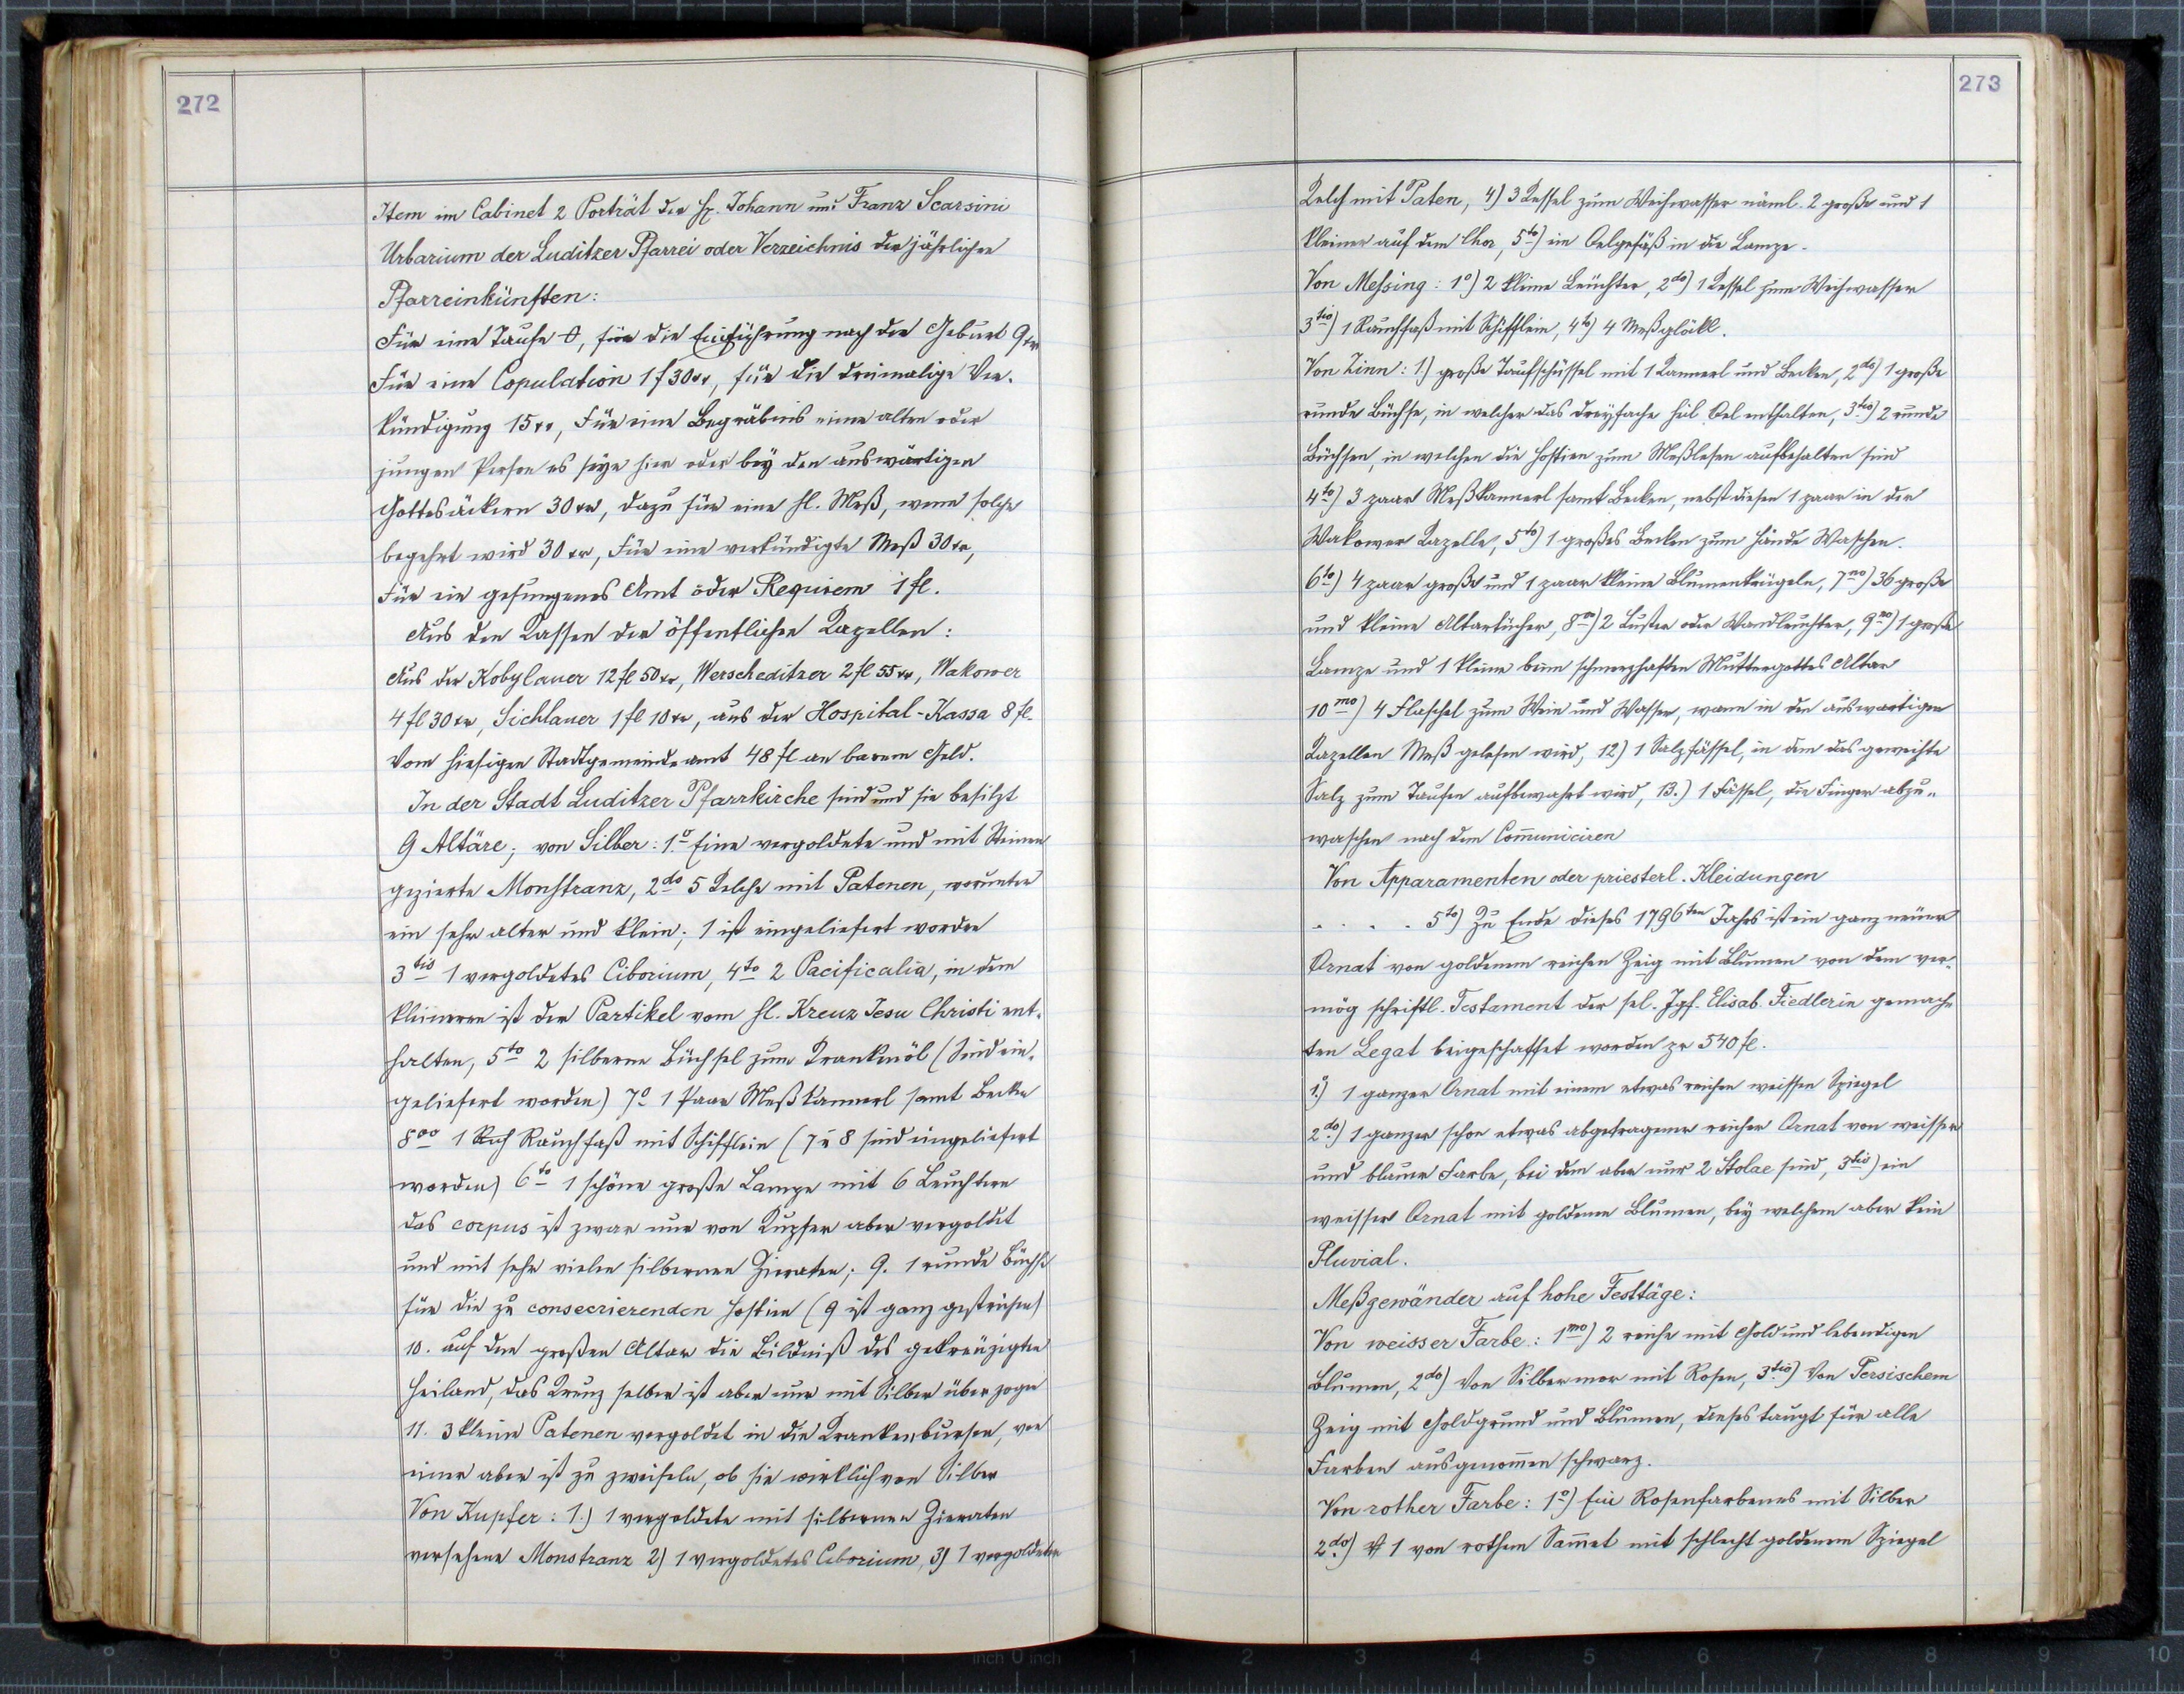 272
Item im Cabinet 2 Porträt der H. Johann und Franz Scarsini
Urbarium der Luditzer Pfarrei oder Verzeichnis der jährlichen
Pfarreinkünften:
Für eine Taufe 0, für die Einführung nach der Geburt 9 kr
Für eine Copulation 1 f 30 kr, für die dreimalige Ver-
kündigung 15 kr, Für eine Begräbnis einer alten oder
jungen Person es seye hier oder bey den auswärtigen
Gottesäckern 30 kr, dazu für eine hl. Meß, wenn solche
begehrt wird 30 kr, Für eine verkündigte Meß 30 kr,
Für ein gesungenes Amt oder Requiem 1 fl.
Aus den Kassen der öffentlichen Kapellen:
Aus der Kobylauer 12 fl 50 kr, Werscheditzer 2 fl 55 kr, Wakower
4 fl 30 kr, Sichlauer 1 fl 10 kr, aus der Hospital-Kassa 8 fl.
Vom hiesigen Stadtgemeindeamt 48 fl an barem Geld.
In der Stadt Luditzer Pfarrkirche sind und sie besitzt
9 Altäre; von Silber: 1.o Eine vergoldete und mit Steinen
gezierte Monstranz, 2do 5 Kelche mit Patenen, worunter
ein sehr alter und klein; 1 ist eingeliefert worden
3tio 1 vergoldetes Ciborium, 4to 2 Pacificalia, in dem
kleineren ist der Partikel vom hl. Kreuz Jesu Christi ent-
halten, 5to 2 silberne Büchsel zum Krankenöl (Sind ein-
geliefert worden) 7o 1 Paar Meßkannerl samt Becken
8vo 1 Rauchfaß mit Schifflein (7 u 8 sind eingeliefert
worden) 6to 1 schöne große Lampe mit 6 Leuchtern
das corpus ist zwar nur von Kupfer aber vergoldet
und mit sehr vielen silbernen Zieraten; 9. 1 runde Büchse
für die zu consecrierenden Hostien (9 ist ganz gestrichen)
10. auf den großen Altar die Bildniß des gekreuzigten
Heiland, das Kreuz selber ist aber nur mit Silber überzogen
11. 3 kleine Patenen vergoldet in die Krankenbursen, von
einer aber ist zu zweifeln, ob sie wirklich von Silber
Von Kupfer: 1.) 1 vergoldete mit silbernen Zieraten
versehene Monstranz 2) 1 vergoldetes Ciborium, 3) 1 vergoldeter
273
Kelch mit Paten, 4) 3 Kessel zum Weihwasser näml. 2 große und 1
kleiner auf dem Chor, 5to) ein Oelgefäß in die Lampe.
Von Meßing: 1o) 2 kleine Leuchter, 2do) 1 Kessel zum Weihwasser
3tio) 1 Rauchfaß mit Schifflein, 4to) 4 Meßglökl.
Von Zinn: 1) große Taufschüssel mit 1 Kannerl und Becken, 2do) 1 große
runde Büchse, in welcher das dreyfache heil Oel enthalten, 3tio) 2 runde
Büchsen, in welchen die Hostien zum Meßlesen aufbehalten sind
4to) 3 paar Meßkannerl samt Becken, nebst diesen 1 paar in der
Wakower Kapelle, 5to) 1 großes Becken zum Hände Waschen.
6to) 4 paar große und 1 paar kleine Blumenkrügeln, 7mo) 36 große
und kleine Altartücher, 8vo) 2 Luster oder Wandleuchter, 9no) 1 große
Lampe und 1 kleine beim schmerzhaften Muttergottes Altar
10mo) 4 Flaschel zum Wein und Wasser, wann in den auswärtigen
Kapellen Meß gelesen wird, 12) 1 Salzfässel, in dem das geweihte
Salz zum Taufen aufbewahrt wird, 13.) 1 Fässel, die Finger abzu-
waschen nach dem Com̅uniciren
Von Apparamenten oder priesterl. Kleidungen
. . . . 5to) Zu Ende dieses 1796ten Jahrs ist ein ganz neuer
Ornat von goldenem reichen Zeig mit Blumen von dem ver-
mög schriftl. Testament der sel. Jgf. Elisab. Fiedlerin gemach-
ten Legat beigeschaffet worden pr 570 fl.
1.) 1 ganzer Ornat mit einem etwas reichen weissen Spiegel
2do.) 1 ganzer schon etwas abgetragener reicher Ornat von weisser
und blauer Farbe, bei dem aber nur 2 Stolae sind, 3tio) ein
weisser Ornat mit goldenen Blumen, bey welchem aber kein
Pluvial.
Meßgewänder auf hohe Festtäge:
Von weisser Farbe: 1mo) 2 reiche mit Gold und lebendigen
Blumen, 2do) Von Silbermor mit Rosen, 3tio) Von Persischem
Zeig mit Goldgrund und Blumen, dieses taugt für alle
Farben ausgenom̅en schwarz.
Von rother Farbe: 1o) Ein Rosenfarbenes mit Silber
2do) 1 von rothem Sam̅et mit schlecht goldenem Spiegel